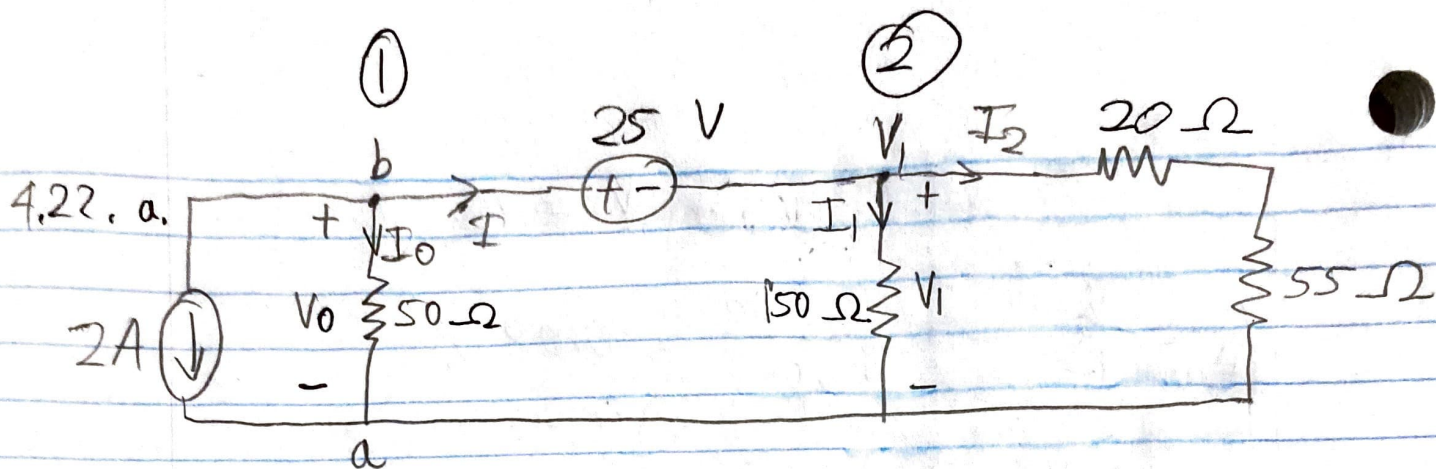 ① ②
25 V
b V₁ I₂ 20 Ω
4.22. a.
+ I₀ I + - I₁ +
2A V₀ 50 Ω 150 Ω V₁ 55 Ω
- -
a